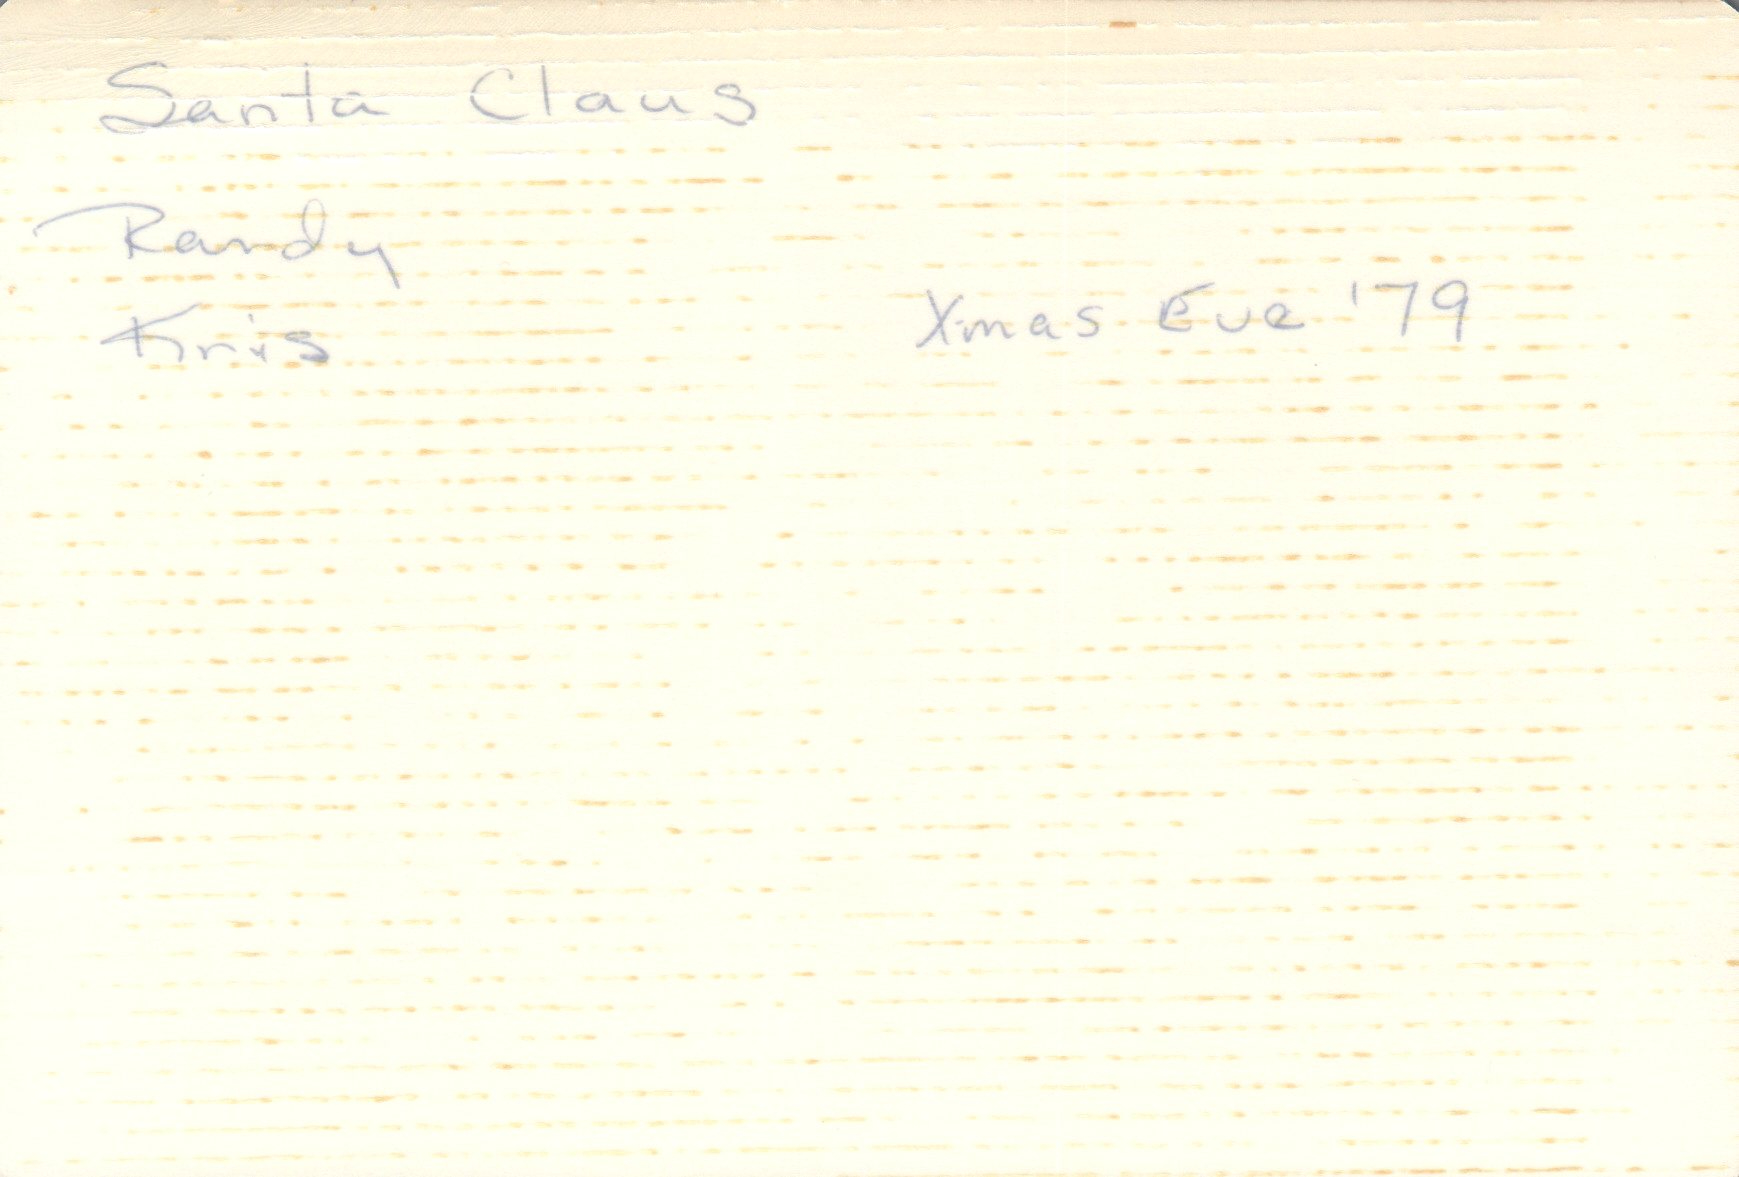 Santa Claus
Randy
Kris
Xmas Eve '79